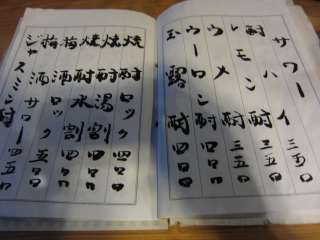 サワーイ 三五〇
酎ハイ 三五〇
レモン酎 三五〇
ウメ酎 三五〇
ウーロン酎 四〇〇
玉露酎 四〇〇
焼酎ロック 四〇〇
焼酎湯割 四〇〇
焼酎水割 四〇〇
梅酒ロック 五〇〇
梅酒サワー 五〇〇
ジャスミン酎 四五〇